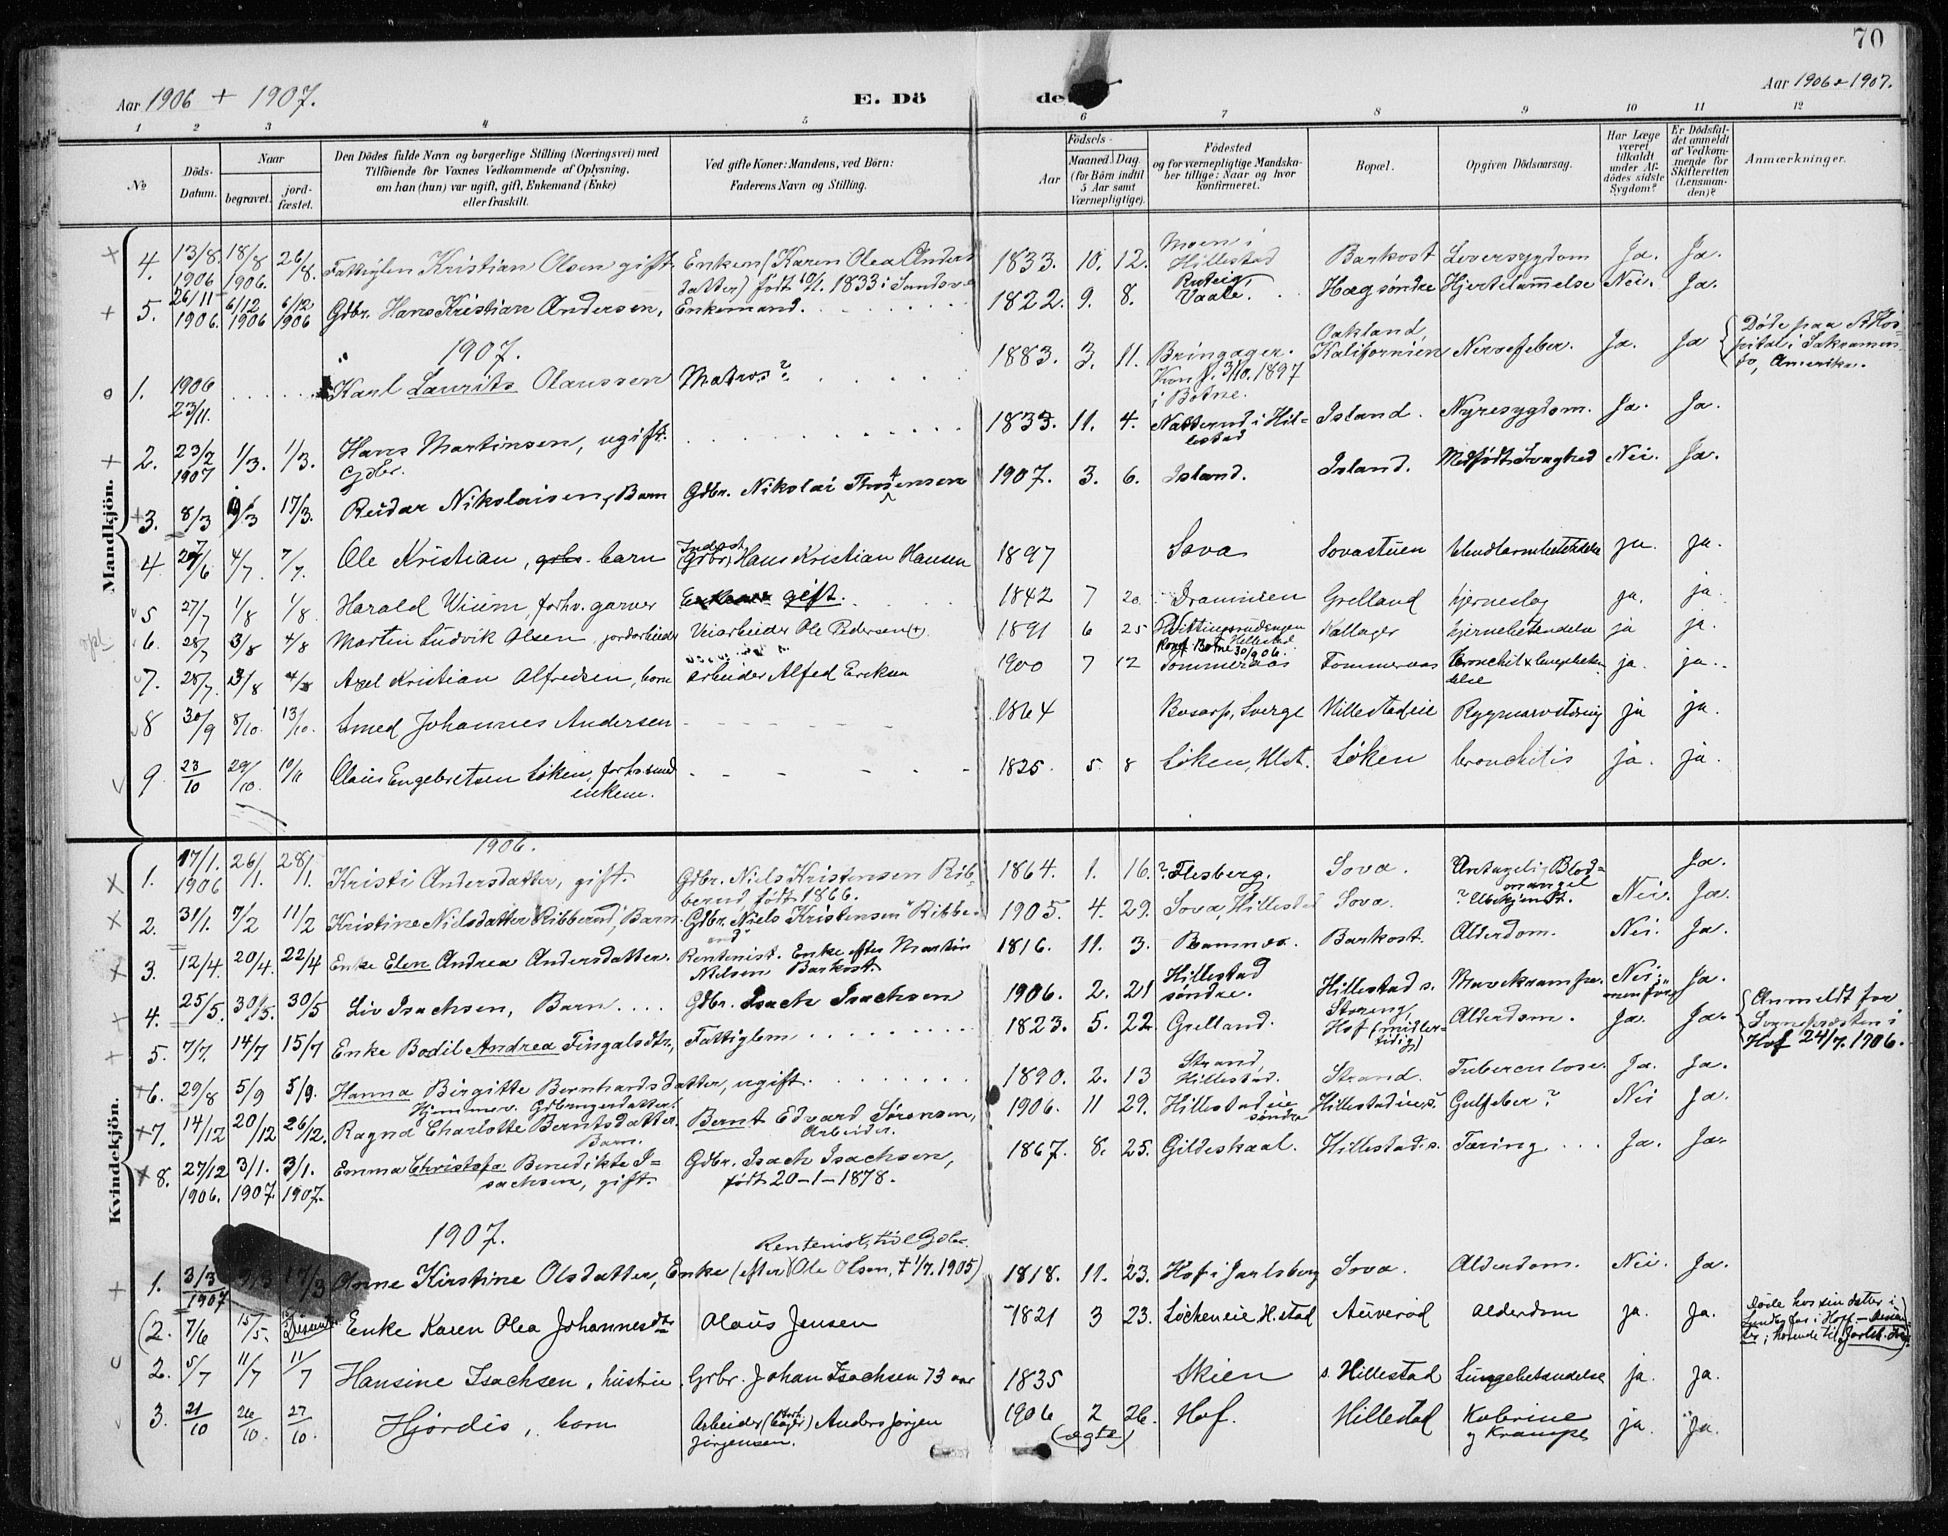 70
Aar 1906 + 1907.
E. Dö
de
Aar 1906 + 1907.
1 2 3 4 5 6 7 8 9 10 11 12
No
Döds-Datum.
Naar
begravet.
jord-fæstet.
Den Dödes fulde Navn og borgerlige Stilling (Næringsvei) med
Tilföiende for Voxnes Vedkommende af Oplysning,
om han (hun) var ugift, gift, Enkemand (Enke)
eller fraskilt.
Ved gifte Koner: Mandens, ved Börn:
Faderens Navn og Stilling.
Födsels-
Aar
Maaned Dag
(for Börn indtil
5 Aar samt
Værnepligtige).
Födested
og for værnepligtige Mandska-
ber tillige: Naar og hvor
konfirmeret.
Bopæl.
Opgiven Dödsaarsag.
Har Læge
været
tilkaldt
under Af-
dödes sidste
Sygdom?
Er Dödsfal-
det anmeldt
af Vedkom-
mende for
Skifteretten
(Lensman-
den)?
Anmærkninger.
Mandkjön.
4. 13/8 1906 18/8 1906. 26/8. Fattiglem Kristian Olsen gift Enken (Karen Olea Anders
datter) født 10/1. 1833 i Sandsv 1833. 10. 12. Moen i Hillestad Barkost Leversygdom Ja. Ja.
5. 26/11 1906. 6/12 1906 6/12 1906 Gdbr. Hans Kristian Andersen, Enkemand. 1822. 9. 8. Vaale. Haug søndre Hjertelammelse Nei. Ja.
1907.
1. 1906 23/11. Karl Laurits Olaussen Matros? 1883. 3. 11. Bringager. Konf. 3/10. 1897 i Botne. Oakland, Kalifornien Nervefeber. Ja. Ja Døde paa Hos-
pital i Sakramen-
to, Amerika.
2. 23/2 1907 1/3. 1/3. Hans Martinsen, ugift. Gdbr. 1833. 11. 4. Natterud i Hil-
lestad Island. Nyresygdom. Ja. Ja.
3. 8/3 17/3. Reidar Nikolaisen, Barn Gdbr. Nikolai Thorsensen 1907. 3. 6. Island. Island. Medfødt Svaghed Nei. Ja.
4 4/7. 7/7. Ole Kristian, barn Gdbr. Hans Kristian Hansen 1897 Sova Sovastuen blindtarmbetændelse ja. ja.
5 27/7 1/8 1/8 Harald Wiim, forhv. garver gift. 1842 7 20 Drammen Grelland hjerneslag ja. ja.
6. 28/7 3/8 4/8 Martin Ludvik Olsen, jordarbeider Veiarbeider Ole Pedersen (+) 1891 6 25 Hvittingsrudengen Hillestad
Konf. Botne 30/9 06. Kallager hjernebetændelse ja ja.
7. 28/7. 3/8 4/8 Axel Kristian Alfredsen, barn arbeider Alfred Eriksen 1900 7 12 Tommeraas Tommeraas bronchit & lungebeten-
delse ja. ja.
8 30/9 8/10. 13/10. Smed Johannes Andersen 1864 Bosarp, Sverge Hillestadeie Rygmarvstæring ja ja.
9. 23/10 29/10. 10/11 Olaus Engebretsen Løken, forhv. smed
enkem. 1825. 5 8 Løken, Hlst. Løken bronchitis ja. ja.
Kvindekjön.
1906.
1. 17/1. 1906 26/1. 28/1. Kristi Andersdatter, gift. Gdbr. Niels Kristensen Rib-
berud, født 1866. 1864. 1. 16. ? Flesberg. Sova. Antagelig Blod-
mangel Ja.
2. 31/1. 7/2 11/2 Kristine Nilsdatter Ribberud, Barn. Gdbr. Niels Kristensen Ribbe
rud 1905. 4. 29. Sova, Hillestad Sova. ? Ubekjendt. Nei. Ja.
3. 12/4. 20/4. 22/4 Enke Elen Andrea Andersdatter. Rentenist. Enke efter Martin
Nilsen Barkost. 1816. 11. 3. Ramnes. Barkost. Alderdom. Nei. Ja.
4. 25/5. 30/5. 30/5 Liv Isachsen, Barn Gdbr. Isach Isachsen 1906. 2. 21 Hillestad
søndre. Hillestad s. Mavekrampe. Nei. Ja.
5. 7/7. 14/7 15/7 Enke Bodil Andrea Fingalsdtr, Fattiglem 1823. 5. 22. Grelland. Hof (midler-
tidig) Alderdom. Ja. Ja. Anmeldt for
Sognepresten i
Hof 24/7. 1906.
6. 29/8 5/9 5/9. Hanna Birgitte Bernhardsdatter, ugift.
Hjemmev. 1890. 2. 13 Strand, Hillestad. Strand. Tuberculose. Ja. Ja.
7. 14/12 20/12 26/12. Ragna Charlotte Berntsdatter.
Barn. Bernt Edvard Sørensen,
Arbeider. 1906. 11 29. Hillestadeie
søndre Hillestadeie s. Gulfeber? Nei Ja.
8. 27/12 1906. 3/1. 1907. 3/1. 1907. Emma Christofa Benedikte I-
sachsen, gift. Gdbr. Isach Isachsen,
født 20-1-1878. 1867. 8. 25. Gildeskaal. Hillestad s. Tæring Ja. Ja.
1907.
Rentenist, til Gdbr.
1. 3/3 1907 17/3 Anne Kirstine Olsdatter, Enke (efter) Ole Olsen, † 1/7. 1905) 1818. 11. 23. Hof i Jarlsberg Sova. Alderdom. Nei. Ja.
(2. 7/6 15/5. Dissent. Enke Karen Olea Johannesdtr Olaus Jensen 1821 3 23. Löckeneie H.stad Auverød Alderdom ja. ja. Døde hos sin datter i
2. 5/7 11/7 11/7 Hansine Isachsen, hustru Grbr. Johan Isachsen 73 aar 1835 Skien s. Hillestad Lungebetændelse ja. ja.
3. 21/10 26/10. 27/10. Hjørdis, barn Arbeider Anders Jørgen
Jörgensen. 1906 2 26.
(ægte) Hof. Hillestad Kolerine
og Krampe ja. ja.